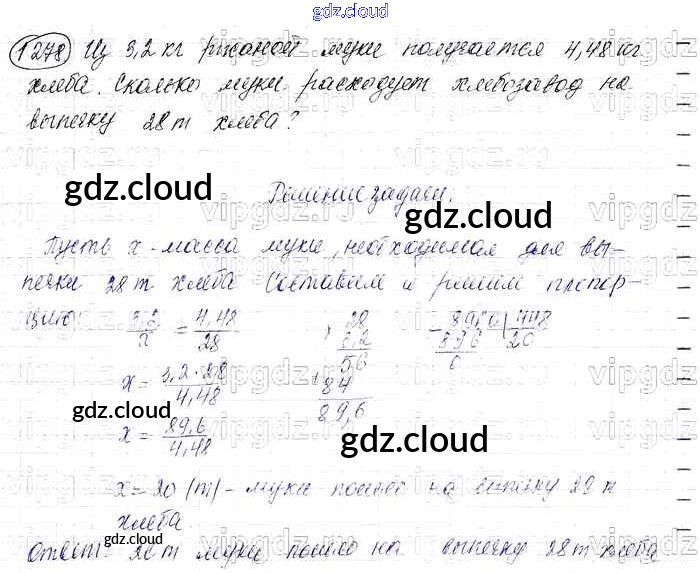 gdz.cloud
1278) Из 3,2 кг ржаной муки получается 4,48 кг
хлеба. Сколько муки расходует хлебозавод на
выпечку 28 т хлеба?
gdz.cloud
Решение задачи.
gdz.cloud
Пусть x - масса муки, необходимая для вы-
печки 28 т хлеба. Составим и решим пропор-
цию 3,2/x = 4,48/28
x = 3,2·28/4,48
x = 89,6/4,48
× 28
3,2
56
+ 84
89,6
- 8960 | 448
896 | 20
0
gdz.cloud
gdz.cloud
gdz.cloud
x = 20 (т) - муки пошло на выпечку 28 т
хлеба.
Ответ: 20 т муки пошло на выпечку 28 т хлеба